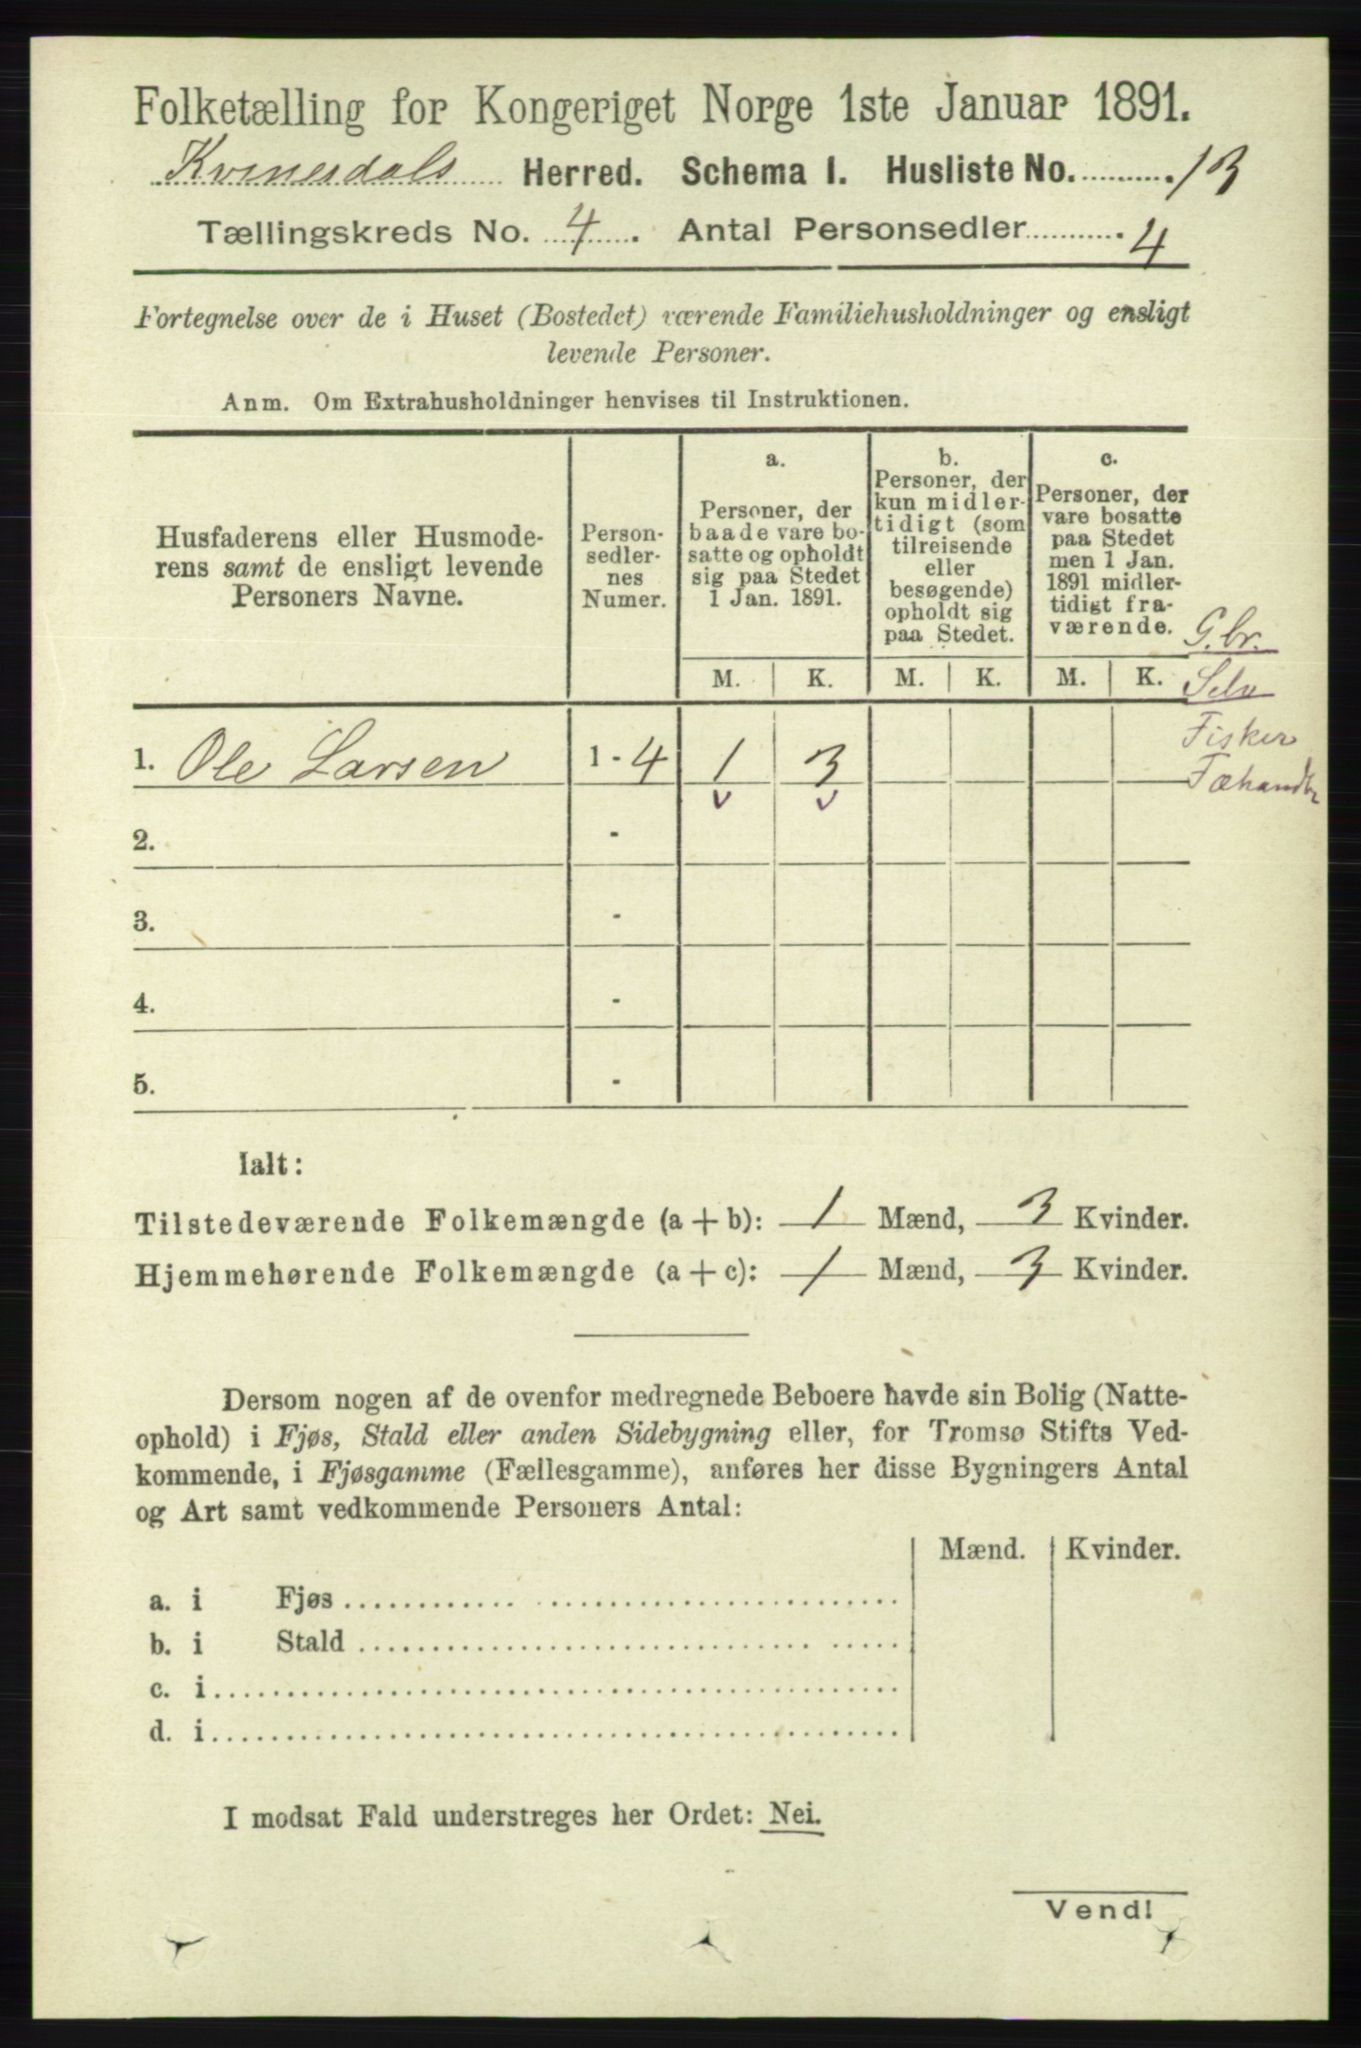 Folketælling for Kongeriget Norge 1ste Januar 1891.
Kvinesdals Herred. Schema I. Husliste No. 13
Tællingskreds No. 4. Antal Personsedler 4
Fortegnelse over de i Huset (Bostedet) værende Familiehusholdninger og ensligt
levende Personer.
Anm. Om Extrahusholdninger henvises til Instruktionen.
Husfaderens eller Husmode-
rens samt de ensligt levende
Personers Navne.
Person-
sedler-
nes
Numer.
a.
Personer, der
baade vare bo-
satte og opholdt
sig paa Stedet
1 Jan. 1891.
b.
Personer, der
kun midler-
tidigt (som
tilreisende
eller
besøgende)
opholdt sig
paa Stedet.
c.
Personer, der
vare bosatte
paa Stedet
men 1 Jan.
1891 midler-
tidigt fra-
værende.
G.br.
M. K. M. K. M. K.
Selv
Fisker
Fæhandlr
1. Ole Larsen 1 - 4 1 3
v v
2. -
3. -
4. -
5. -
Ialt:
Tilstedeværende Folkemængde (a + b): 1 Mænd, 3 Kvinder.
Hjemmehørende Folkemængde (a + c): 1 Mænd, 3 Kvinder.
Dersom nogen af de ovenfor medregnede Beboere havde sin Bolig (Natte-
ophold) i Fjøs, Stald eller anden Sidebygning eller, for Tromsø Stifts Ved-
kommende, i Fjøsgamme (Fællesgamme), anføres her disse Bygningers Antal
og Art samt vedkommende Personers Antal:
Mænd. Kvinder.
a. i Fjøs
b. i Stald
c. i
d. i
I modsat Fald understreges her Ordet: Nei.
Vend!